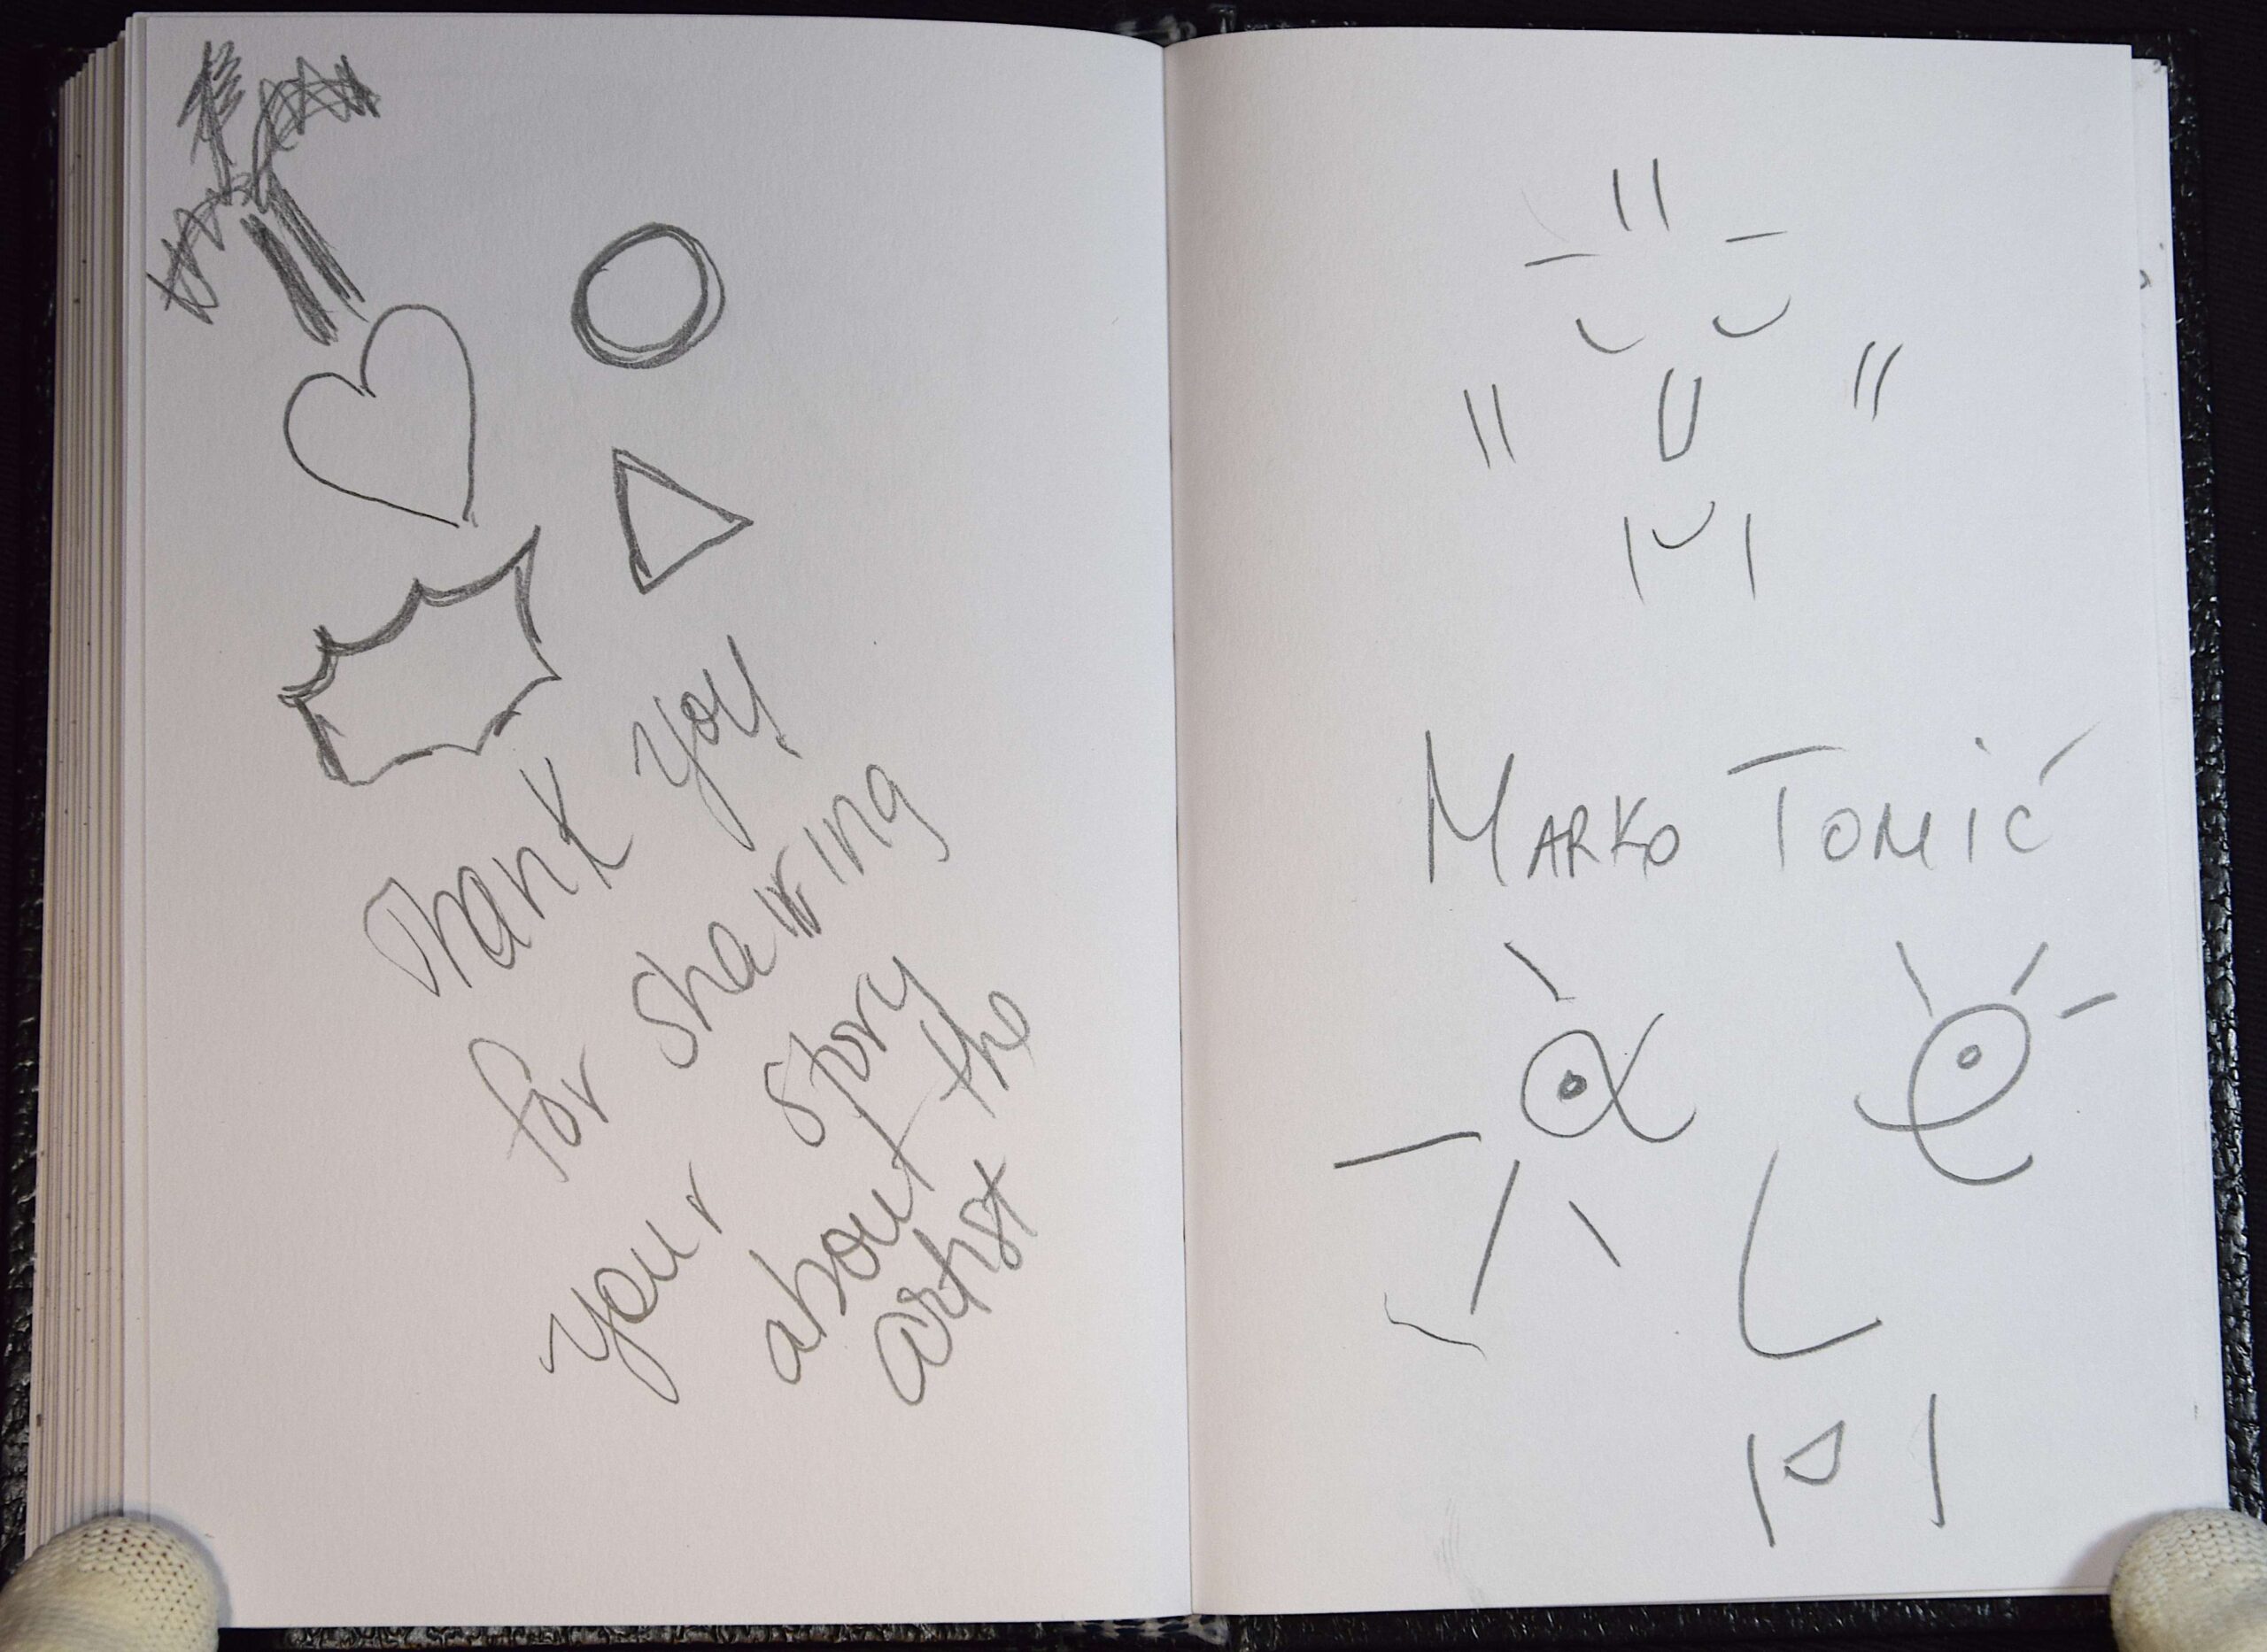 Thank you
for sharing
your story
about the
artist
MARKO TOMIĆ